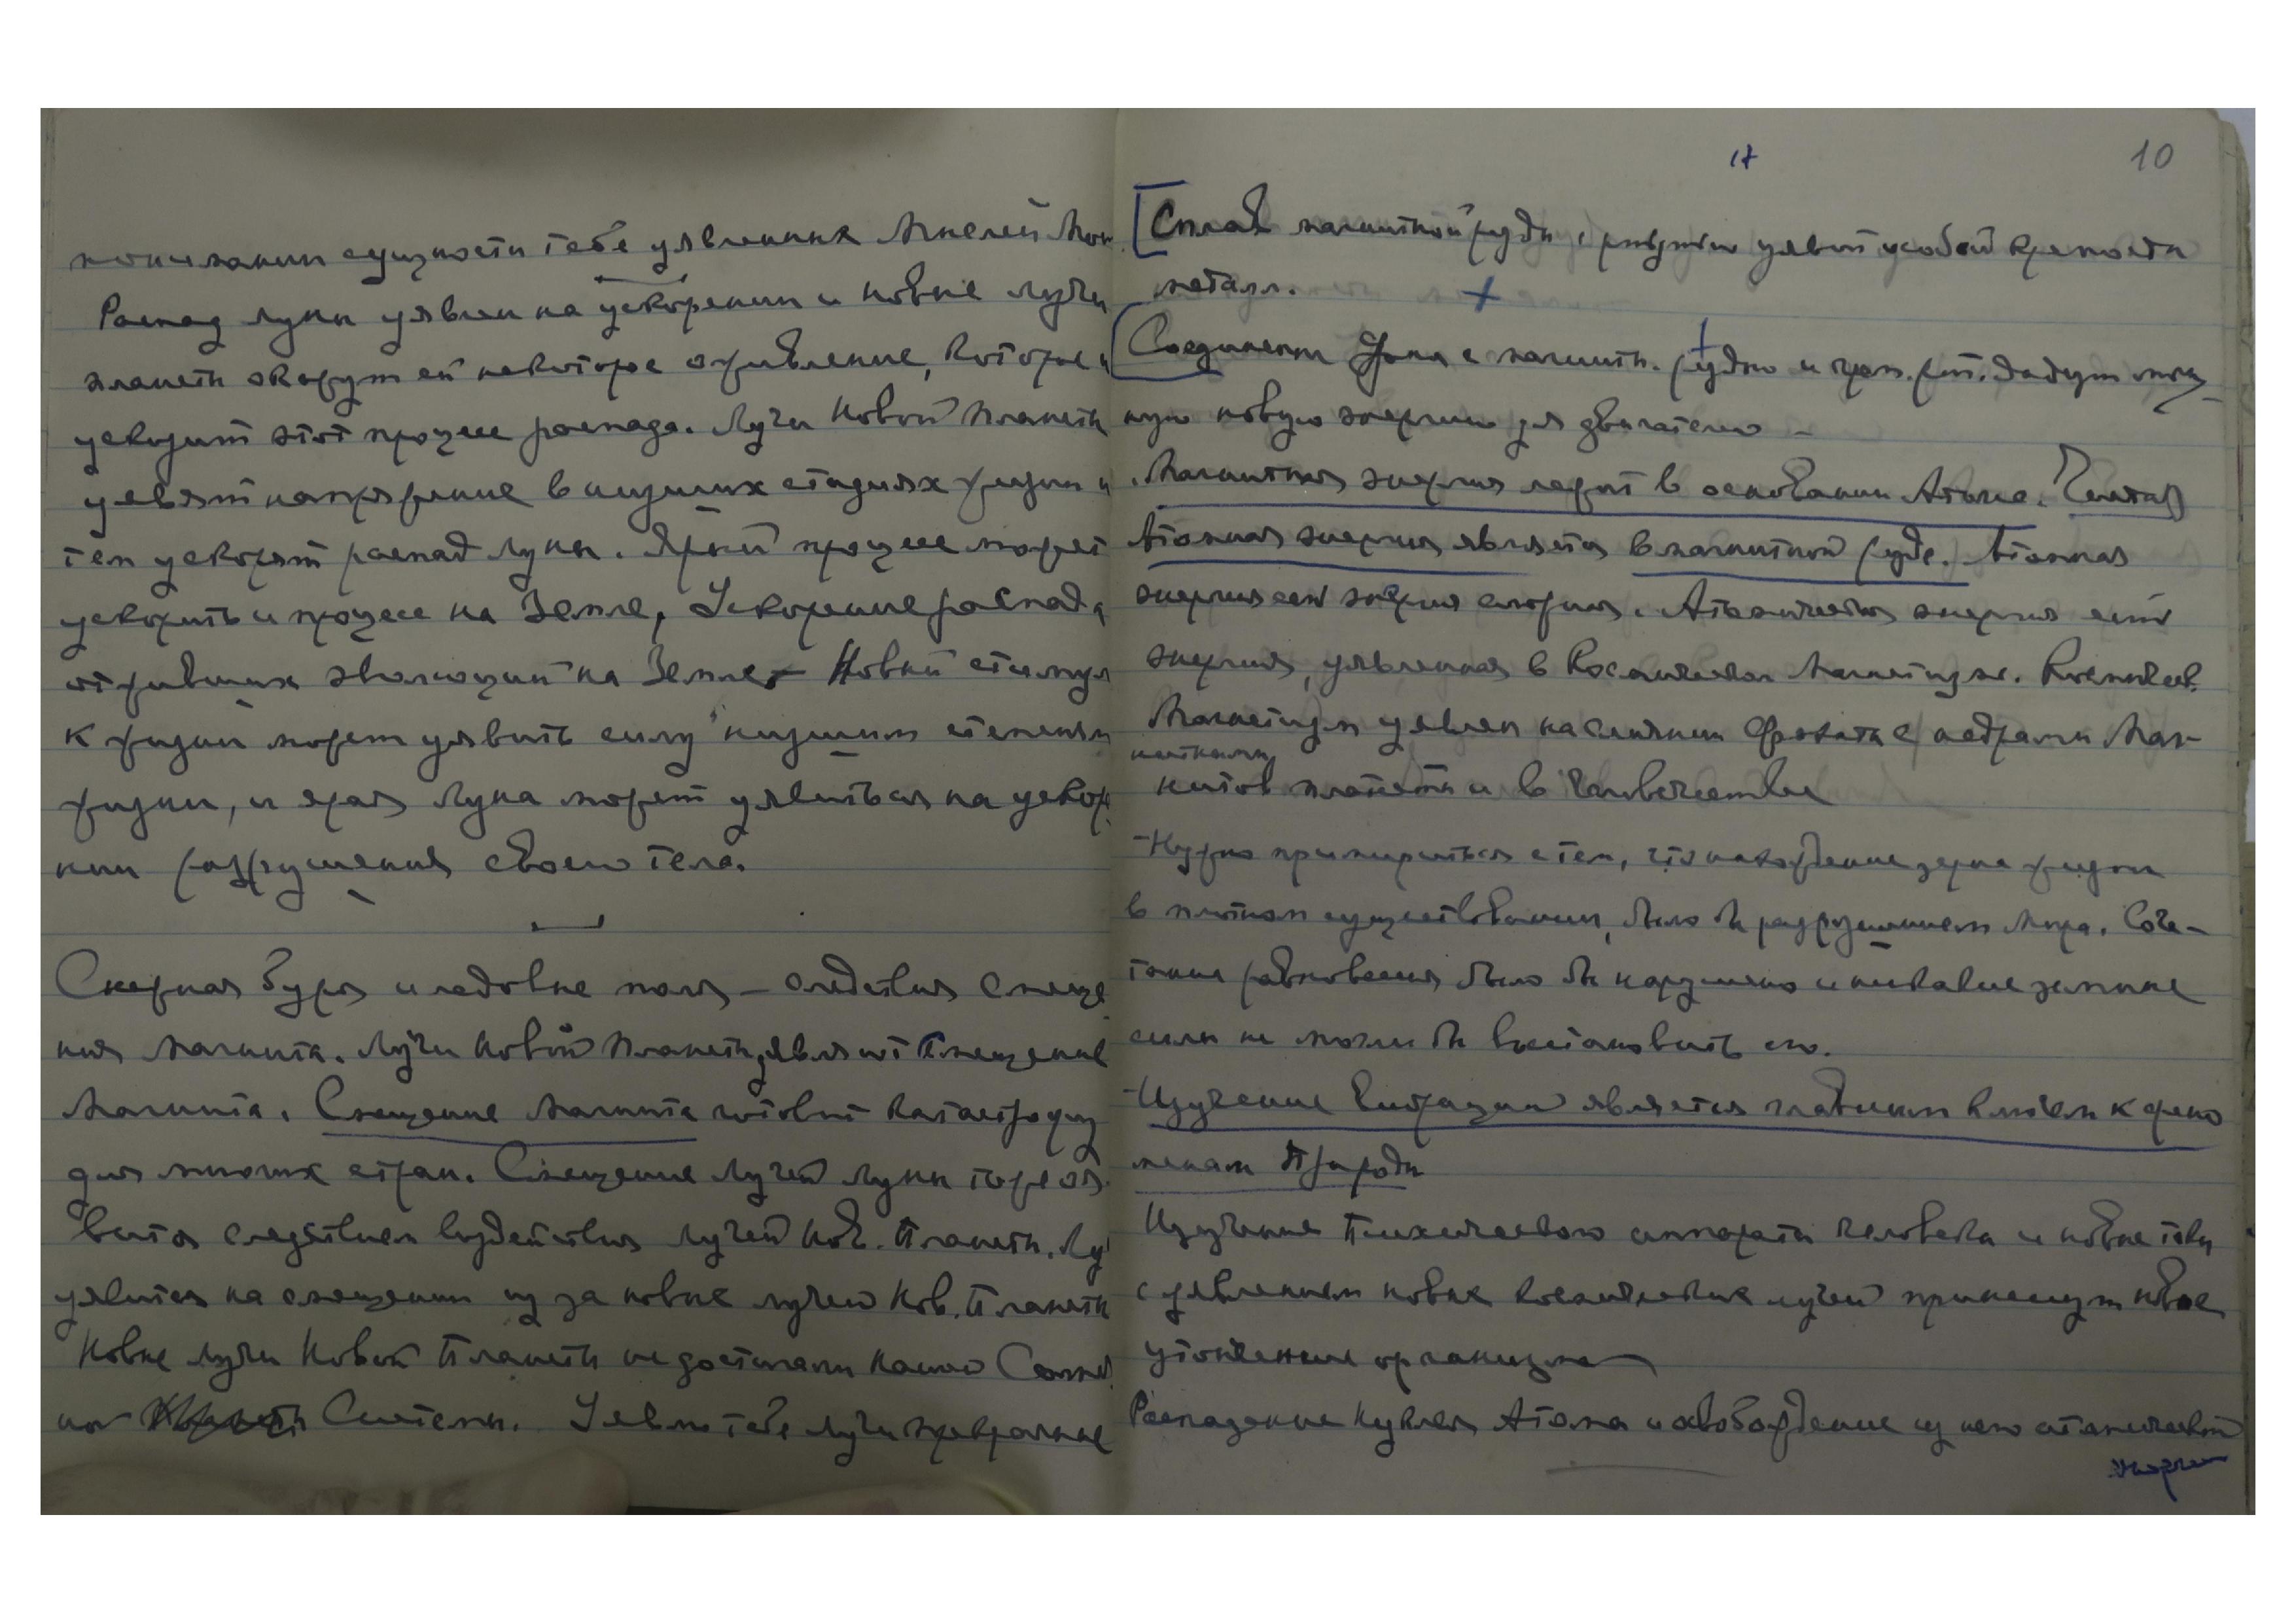 понимании сущности тебе уявленных Мыслей Мои
Распад луны уявлен на ускорении и новые лучи
планеты окажут ей некоторое оживление, которое и
ускорит этот процесс распада. Лучи Новой Планеты
уявят напряжение в низших стадиях жизни и
тем ускорят распад луны. Ярый процесс может
ускорить и процесс на Земле, Ускорение распада
отживших эволюций на Земле. Новый стимул
к жизни может уявить силу низшим степеням
жизни, и ярая Луна может уявиться на ускоре
нии разрушения своего тела.
Снежная буря и ледовые поля – следствия Смеще
ния Магнита. Лучи Новой Планеты являют Смещение
Магнита. Смещение Магнита готовит катастрофу
для многих стран. Смещение лучей Луны тоже яв
вится следствием воздействия лучей Нов. Планеты. Лу
уявится на смещении из за новых лучей Нов. Планеты
Новые лучи Новой Планеты не достигали нашей Солнеч
ной Системы. Уявлю тебе лучи прекрасные
17
10
Сплав магнитной руды с уявит особой крепости
металл.
Соединения с магнитн. рудою и дадут мощ
ную новую энергию для двигателей –
Магнитная энергия лежит в основании Атома.
Атомная энергия является в магнитной руде. Атомная
энергия есть энергия сложная. Атомическая энергия есть
энергия, уявленная в Космическом Магнетизме. Космическ.
Магнетизм уявлен на слиянии Фохата с недрами Маг-
нитными
нитов планеты и в Человечестве
– Нужно примириться с тем, что нахождение зерна жизни
в плотном существовании, было бы разрушением Мира. Соче-
тание равновесия было бы нарушено и никакие земные
силы не могли бы восстановить его.
– Изучение Вибраций является главным ключом к фено
менам Природы
Изучение Психического аппарата человека и новые токи
с уявлением новых космических лучей принесут новое
утончение организма
Распадение Нуклея Атома и освобождение из него атомической
энергии